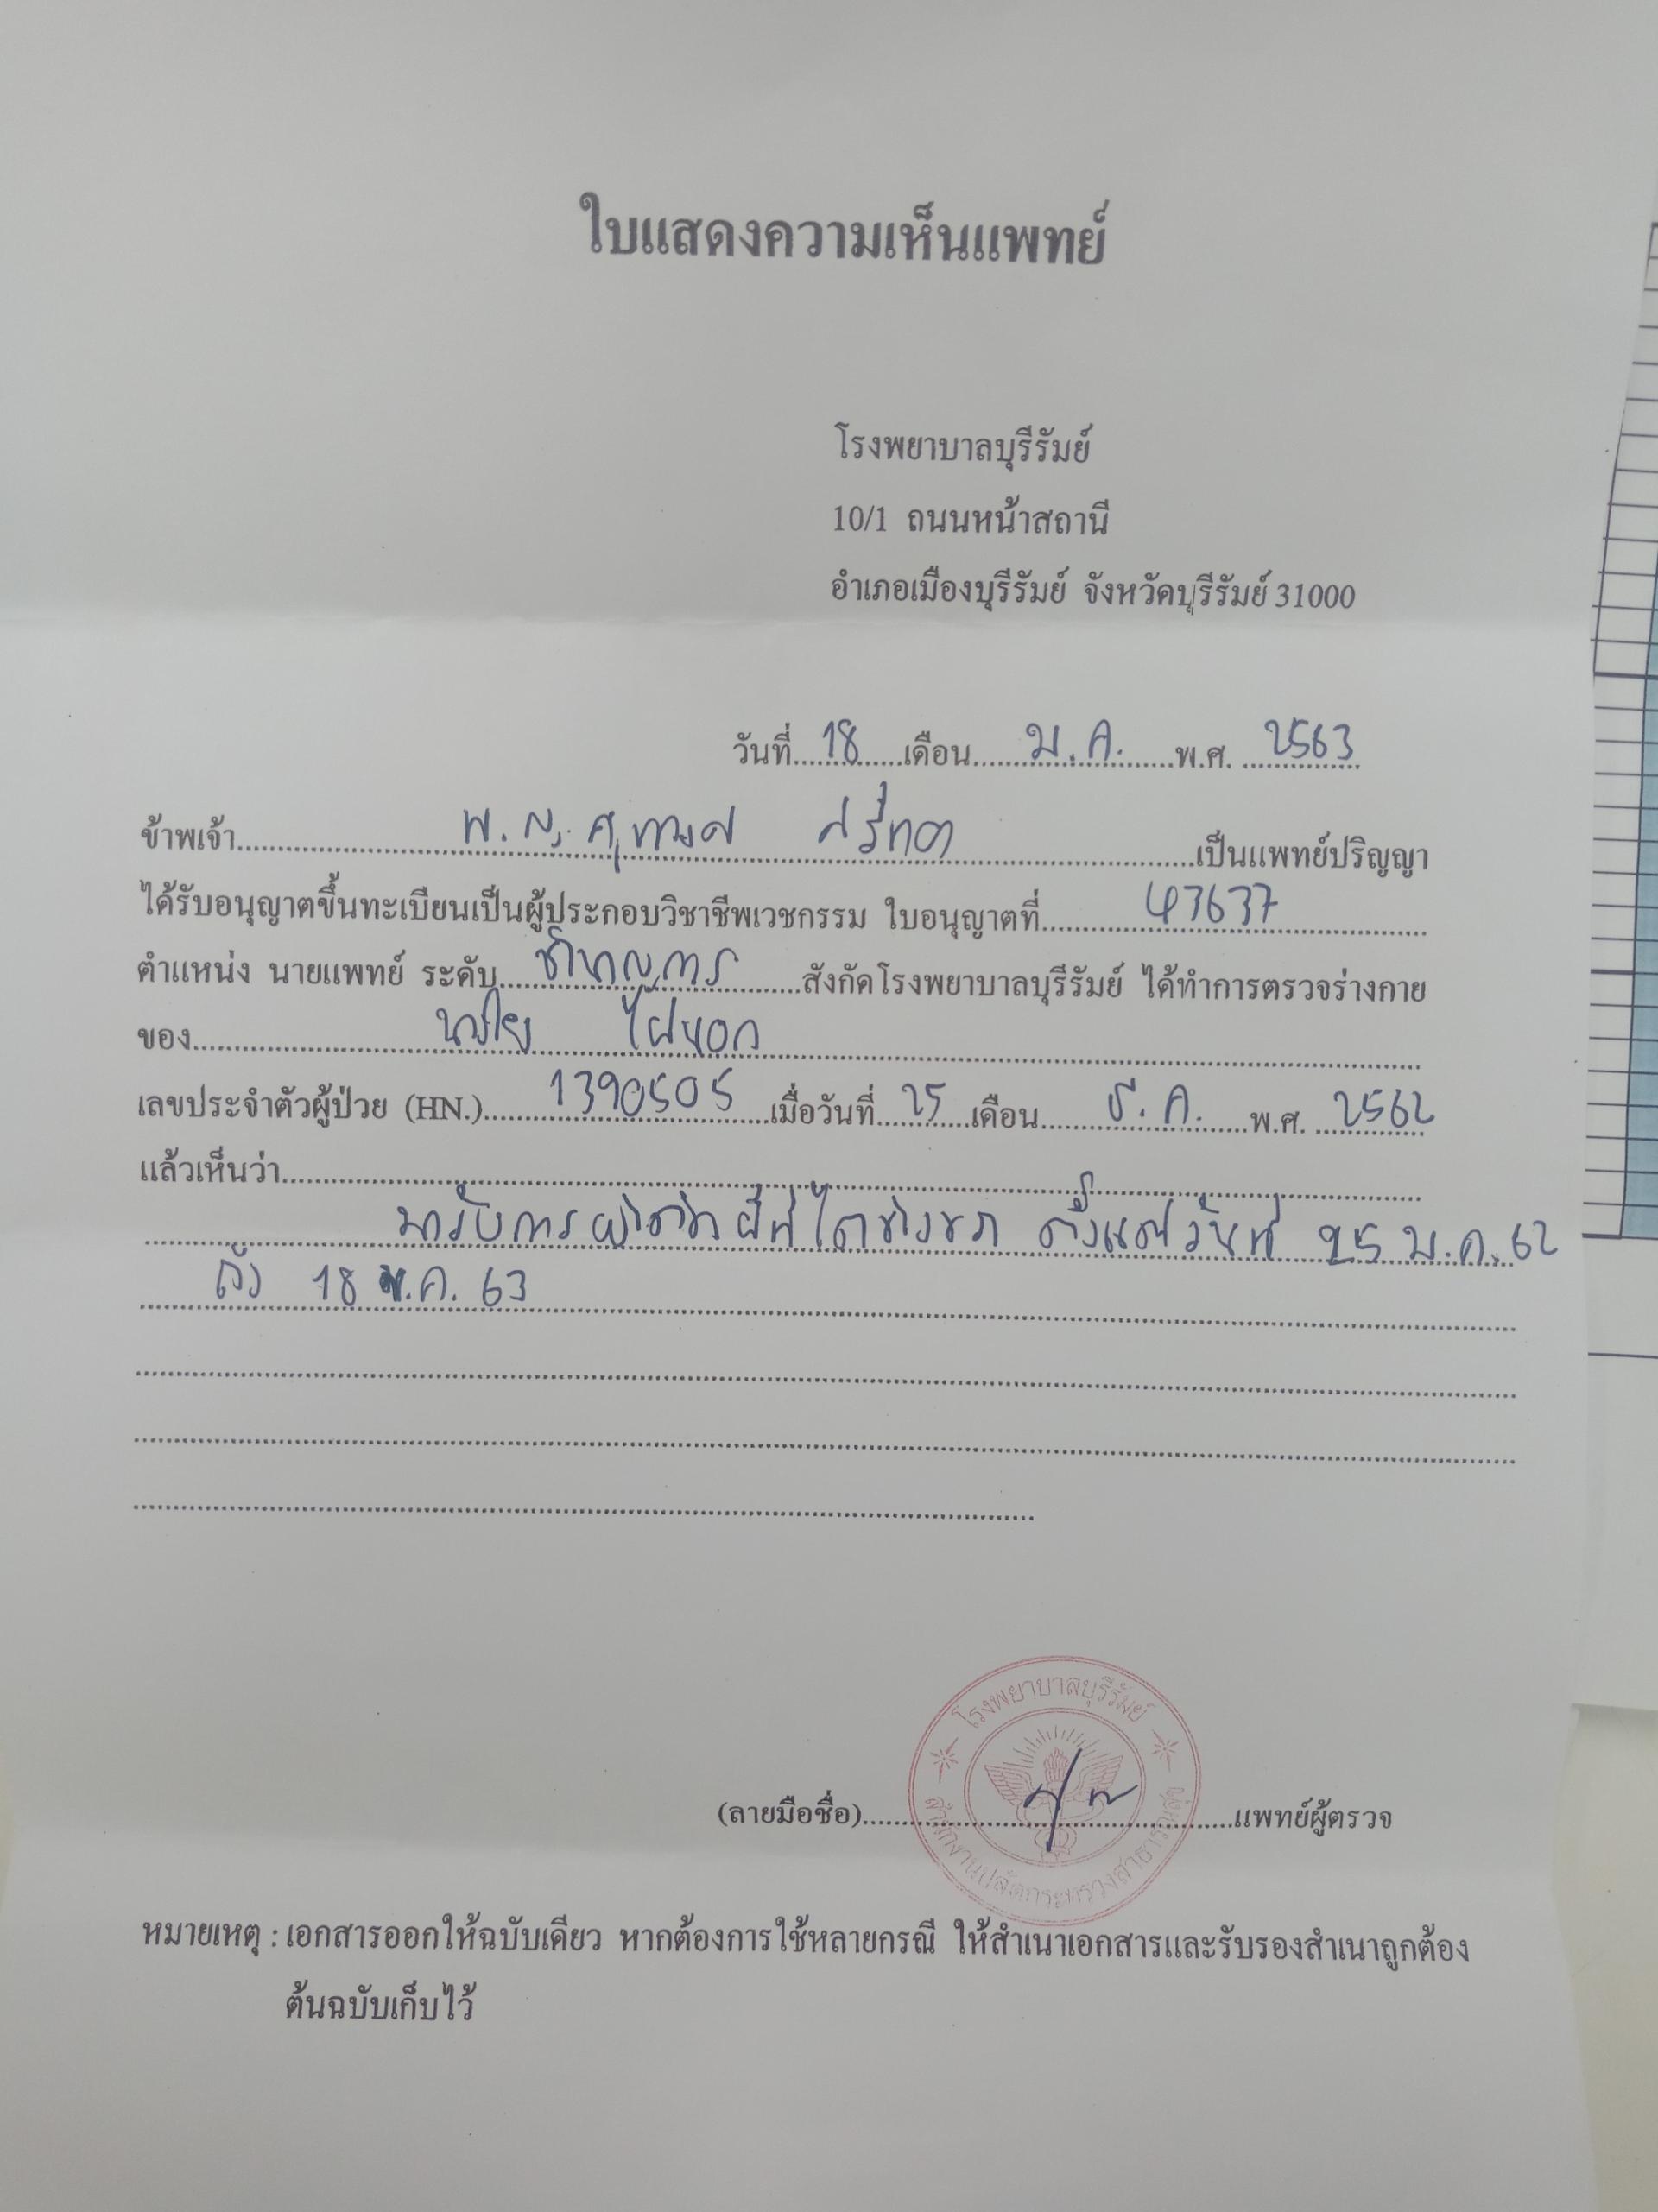 ใบแสดงความเห็นแพทย์
โรงพยาบาลบุรีรัมย์
10/1 ถนนหน้าสถานี
อำเภอเมืองบุรีรัมย์ จังหวัดบุรีรัมย์ 31000
วันที่ 18 เดือน ม.ค. พ.ศ. 2563
ข้าพเจ้า พ.ญ. เป็นแพทย์ปริญญา
ได้รับอนุญาตขึ้นทะเบียนเป็นผู้ประกอบวิชาชีพเวชกรรม ใบอนุญาตที่ 43637
ตำแหน่ง นายแพทย์ ระดับ ชำนาญการ สังกัดโรงพยาบาลบุรีรัมย์ ได้ทำการตรวจร่างกาย
ของ
เลขประจำตัวผู้ป่วย (HN.) 1390505 เมื่อวันที่ 25 เดือน ธ.ค. พ.ศ. 2562
แล้วเห็นว่า
มารับการผ่าตัด ฝีที่ไตข้างขวา ตั้งแต่วันที่ 25 ม.ค. 62
ถึง 18 ม.ค. 63
โรงพยาบาลบุรีรัมย์
(ลายมือชื่อ) แพทย์ผู้ตรวจ
สำนักงานปลัดกระทรวงสาธารณสุข
หมายเหตุ : เอกสารออกให้ฉบับเดียว หากต้องการใช้หลายกรณี ให้สำเนาเอกสารและรับรองสำเนาถูกต้อง
ต้นฉบับเก็บไว้